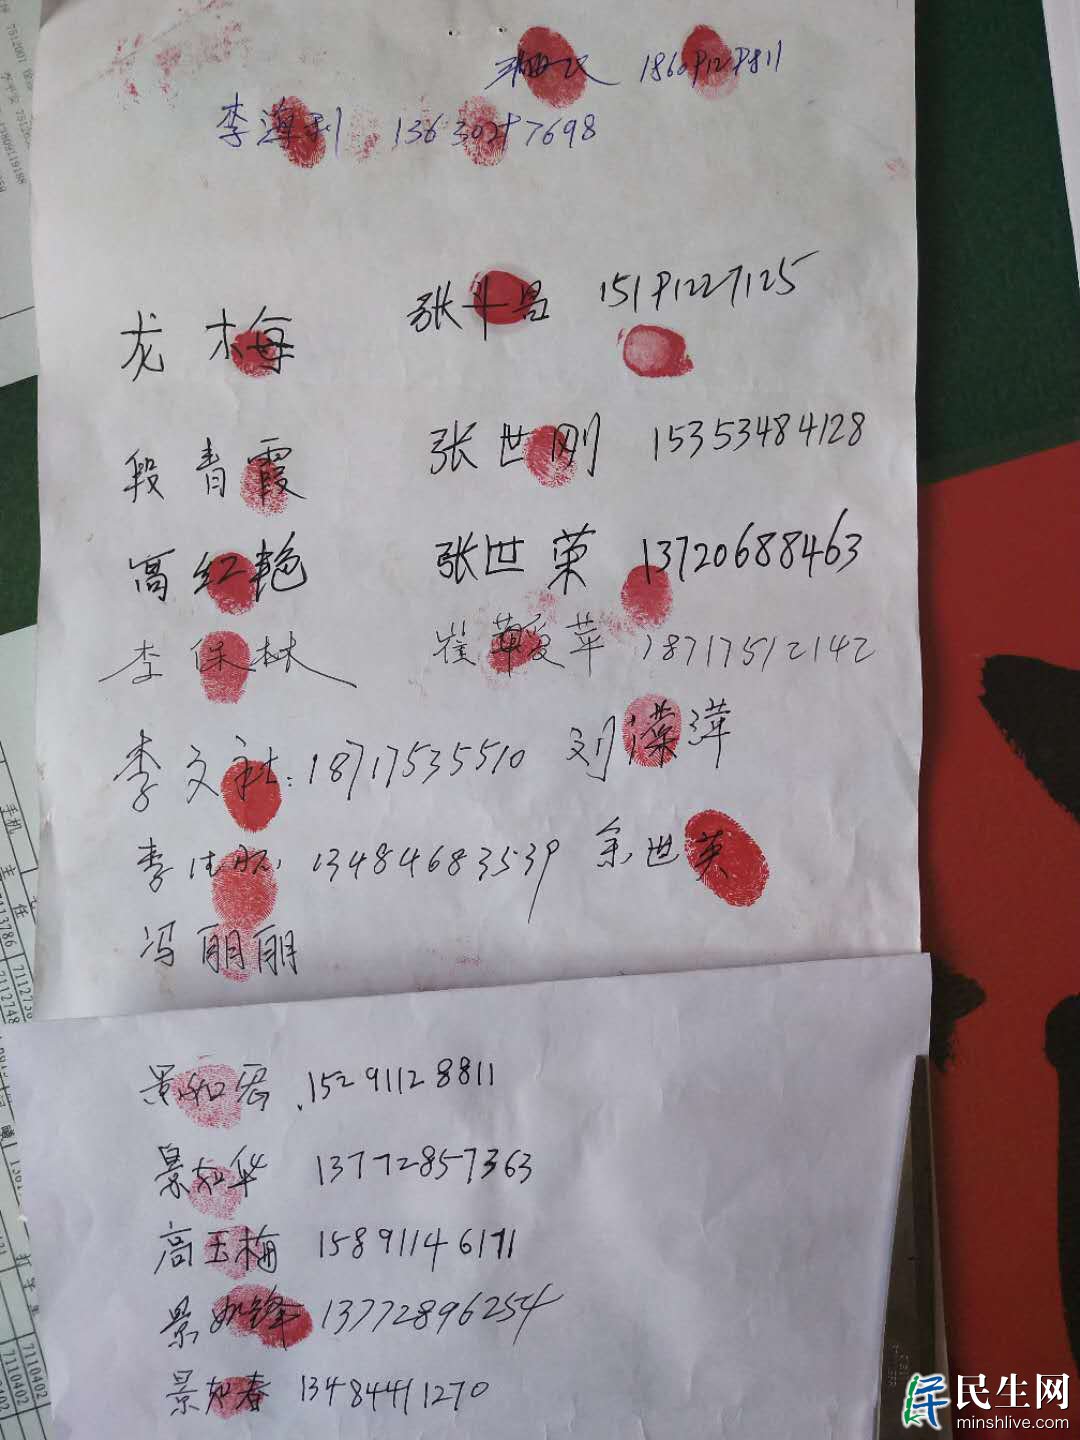 李海利 13630287698
龙梅 张斗昌 15191227125
段青霞 张世刚 15353484128
高红艳 张世荣 13720688463
李保林 崔 爱苹 18717512142
李文社:18717535510 刘 萍
李 13484683539 余世英
冯丽丽
景 宏 15291128811
景如华 13772857363
高玉梅 15891146171
景如锋 13772896254
景如春 13484411270
民生网
minshlive.com